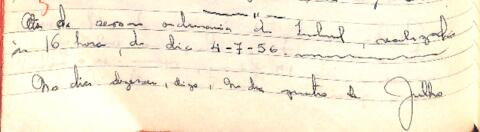 Ata da sessão ordinária do Tribunal, realizada
às 16 horas, do dia 4-7-56.
No dia dezesseis, digo, No dia quatro de Julho